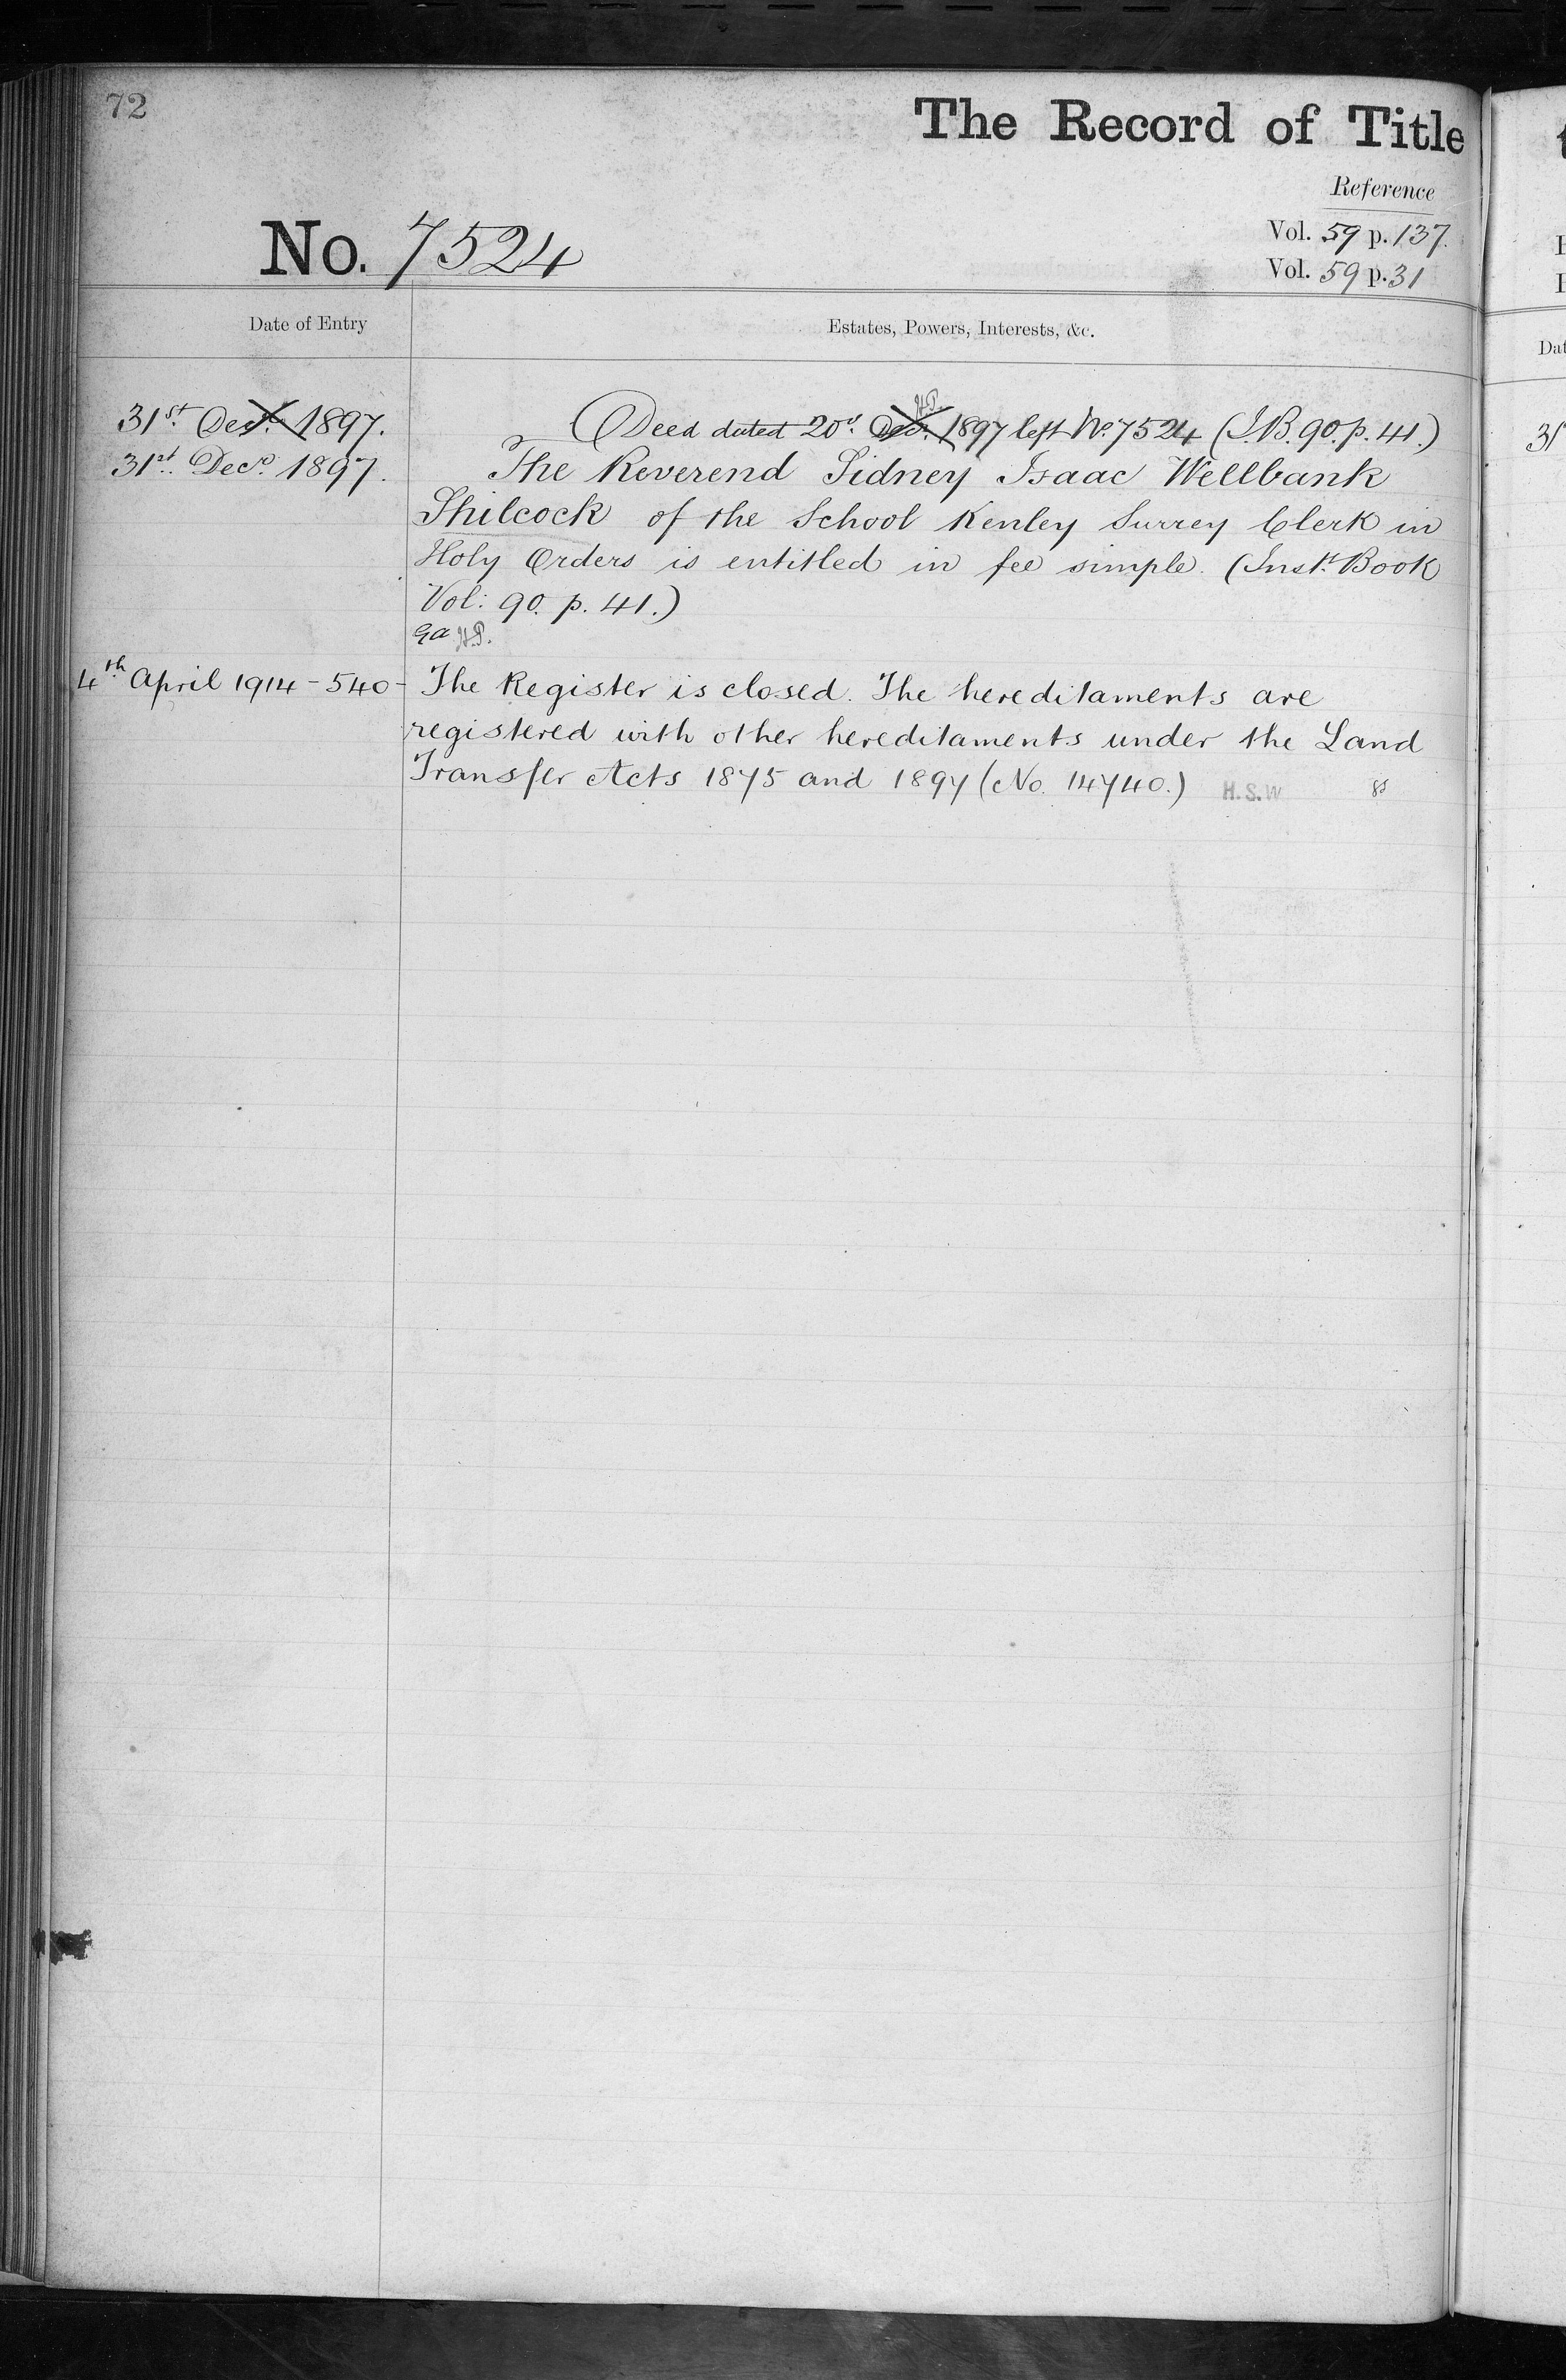 72
The Record of Title
Reference
No. 7524
Vol. 59 p. 137.
Vol. 59 p. 31
Date of Entry
Estates, Powers, Interests, &c.
31st. Decr. 1897.
H.P.
Deed dated 20th Decr. 1897 left No. 7524 (I.B. 90. p. 41.)
31st. Decr. 1897.
The Reverend Sidney Isaac Wellbank
Shilcock of the School Kenley Surrey Clerk in
Holy Orders is entitled in fee simple. (Inst. Book
Vol: 90. p. 41.)
H.P.
4th. April 1914 - 540 -
The Register is closed. The hereditaments are
registered with other hereditaments under the Land
Transfer Acts 1875 and 1897 (No. 14740.) H.S.W
Dat
31